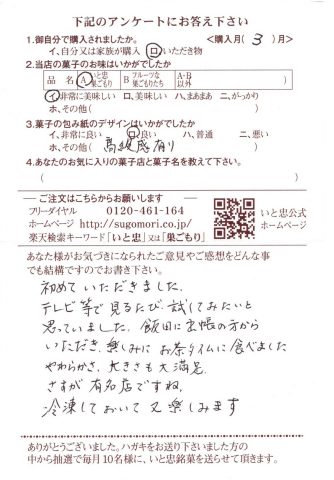 下記のアンケートにお答え下さい
1.御自分で購入されましたか。 <購入月( 3 )月>
イ、自分又は家族が購入 ロ、いただき物
2.当店の菓子のお味はいかがでしたか
品名 A いと忠巣ごもり B フルーツな巣ごもりたち A・B以外 ( )
イ、非常に美味しい ロ、美味しい ハ、まあまあ ニ、がっかり
ホ、その他( )
3.菓子の包み紙のデザインはいかがでしたか
イ、非常に良い ロ、良い ハ、普通 ニ、悪い
ホ、その他( 高級感有り )
4.あなたのお気に入りの菓子店と菓子名を教えて下さい。
( )
ご注文はこちらからお願いします
フリーダイヤル 0120-461-164
ホームページ http://sugomori.co.jp/
楽天検索キーワード「いと忠」又は「巣ごもり」
いと忠公式
ホームページ
あなた様がお気づきになられたご意見やご感想をどんな事
でも結構ですのでお書き下さい。
初めていただきました。
テレビ等で見るたび、試してみたいと
思っていました。飯田に主帳の方から
いただき、楽しみにお茶タイムに食べました
やわらかさ、大きさも大満足。
さすが有名店ですね。
冷凍しておいて又楽しみます
ありがとうございました。ハガキをお送り下さいました方の
中から抽選で毎月10名様に、いと忠銘菓を送らせて頂きます。